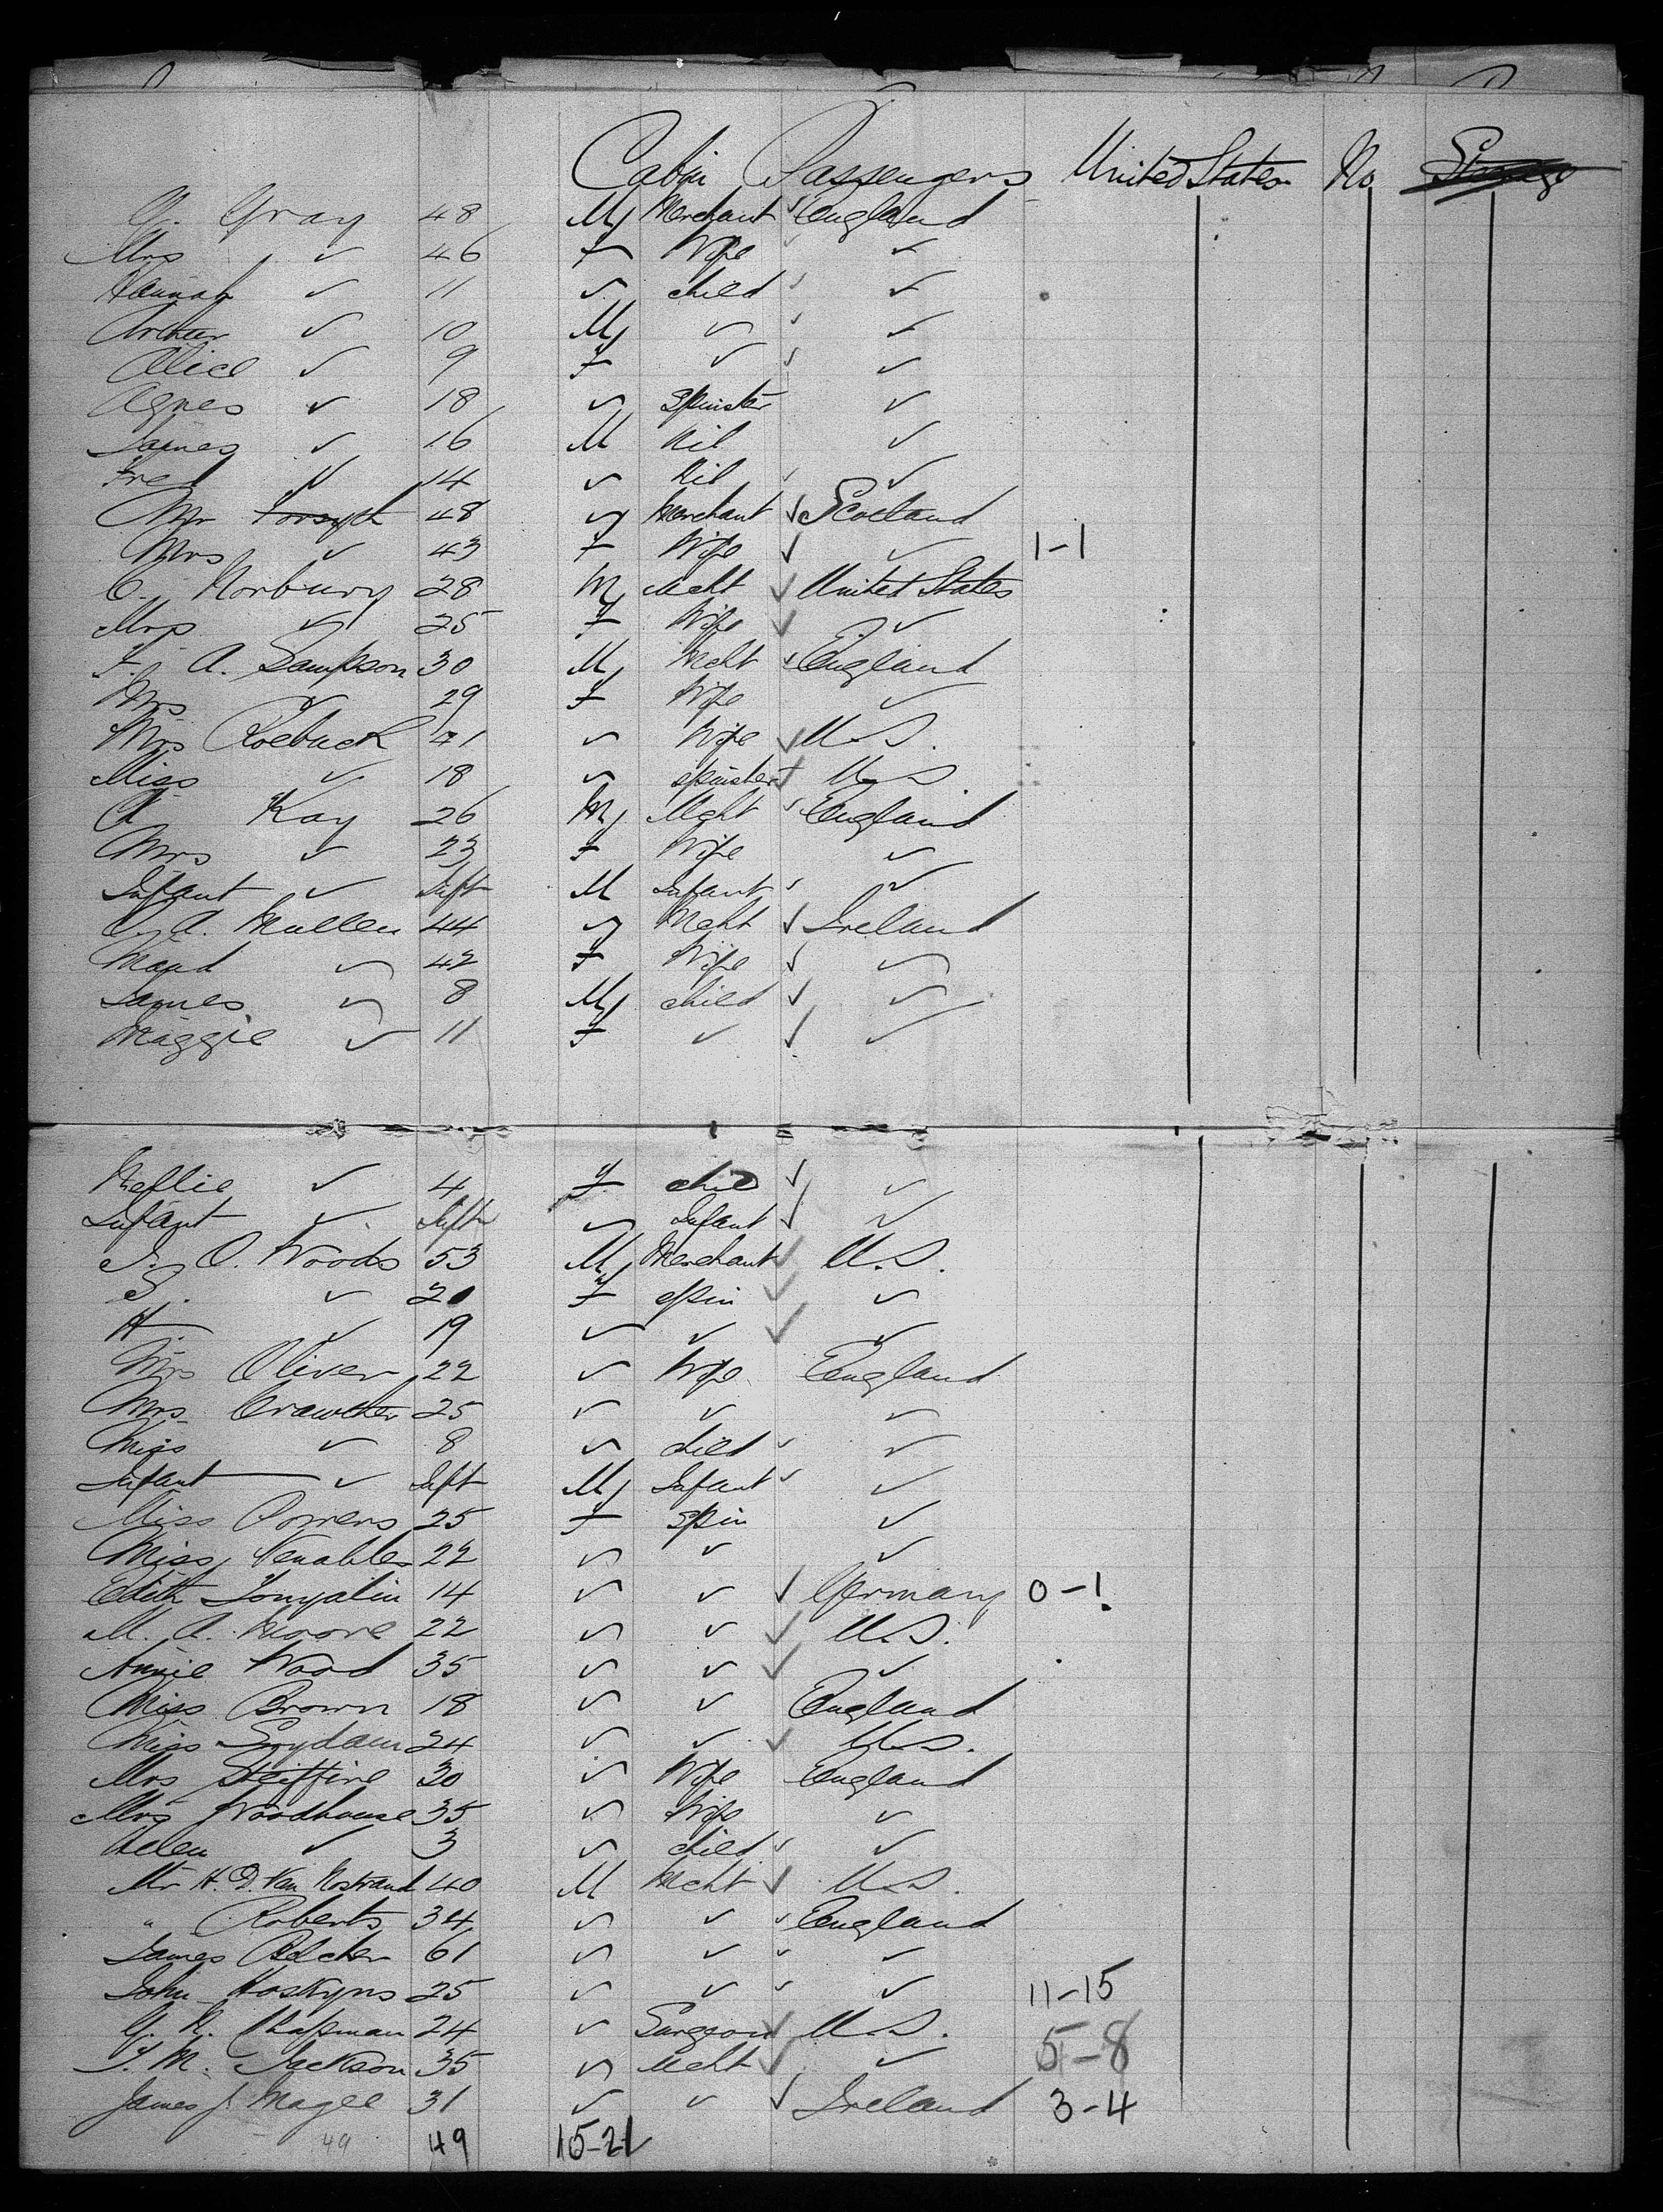 Cabin Passengers United States No Steerage
G. Gray 48 M Merchant ✓ England
Mrs ✓ 46 F Wife ✓ ✓
Hannah ✓ 11 ✓ child ✓ ✓
Arthur ✓ 10 M ✓ ✓ ✓
Alice ✓ 9 F ✓ ✓ ✓
Agnes ✓ 18 ✓ Spinster ✓
James ✓ 16 M Nil ✓
Fred ✓ 14 ✓ Nil ✓ ✓
Mr Forsyth 48 ✓ Merchant ✓ Scotland
Mrs ✓ 43 F Wife ✓ ✓ 1-1
C. Norbury 28 M Mcht ✓ United States
Mrs ✓ 25 F Wife ✓ ✓
F. A. Sampson 30 M Mcht ✓ England
Mrs ✓ 29 F Wife ✓
Mrs Roebuck 41 ✓ Wife ✓ U.S.
Miss ✓ 18 ✓ spinster ✓ U.S.
A Kay 26 M Mcht ✓ England
Mrs ✓ 23 F Wife ✓
Infant ✓ Inft M Infant ✓ ✓
A. Mullen 44 ✓ Mcht ✓ Ireland
Maud ✓ 42 F Wife ✓ ✓
James ✓ 8 M child ✓ ✓
Maggie ✓ 11 F ✓ ✓ ✓
Neflie ✓ 4 F child ✓ ✓
Infant ✓ Inft ✓ Infant ✓ ✓
J. O. Woods 53 M Merchant ✓ U.S.
S. ✓ 20 F spin ✓ ✓
H ✓ 19 ✓ ✓ ✓ ✓
Mrs Oliver 22 ✓ Wife England
Mrs Crawther 25 ✓ ✓ ✓
Miss ✓ 8 ✓ child ✓ ✓
Infant ✓ Inft M Infant ✓ ✓
Miss Powers 25 F Spin ✓
Miss Venables 22 ✓ ✓ ✓
Edith 14 ✓ ✓ ✓ Germany 0-1
M. A. Moore 22 ✓ ✓ ✓ U.S.
Annie Wood 35 ✓ ✓ ✓ ✓
Miss Brown 18 ✓ ✓ England
Miss Suydam 24 ✓ ✓ ✓ U.S.
Mrs 30 ✓ Wife England
Mrs Woodhouse 35 ✓ Wife ✓
Helen ✓ 3 ✓ child ✓ ✓
Mr H. D. Van Nostrand 40 M Mcht ✓ U.S.
" Roberts 34 ✓ ✓ ✓ England
James Belcher 61 ✓ ✓ ✓ ✓
John Hoskyns 25 ✓ ✓ ✓ ✓ 11-15
G. R. Chapman 24 ✓ Surgeon ✓ U.S. 5-8
T. M. Jackson 35 ✓ Mcht ✓ ✓
James J. Magee 31 ✓ ✓ ✓ Ireland 3-4
49 49 15-21